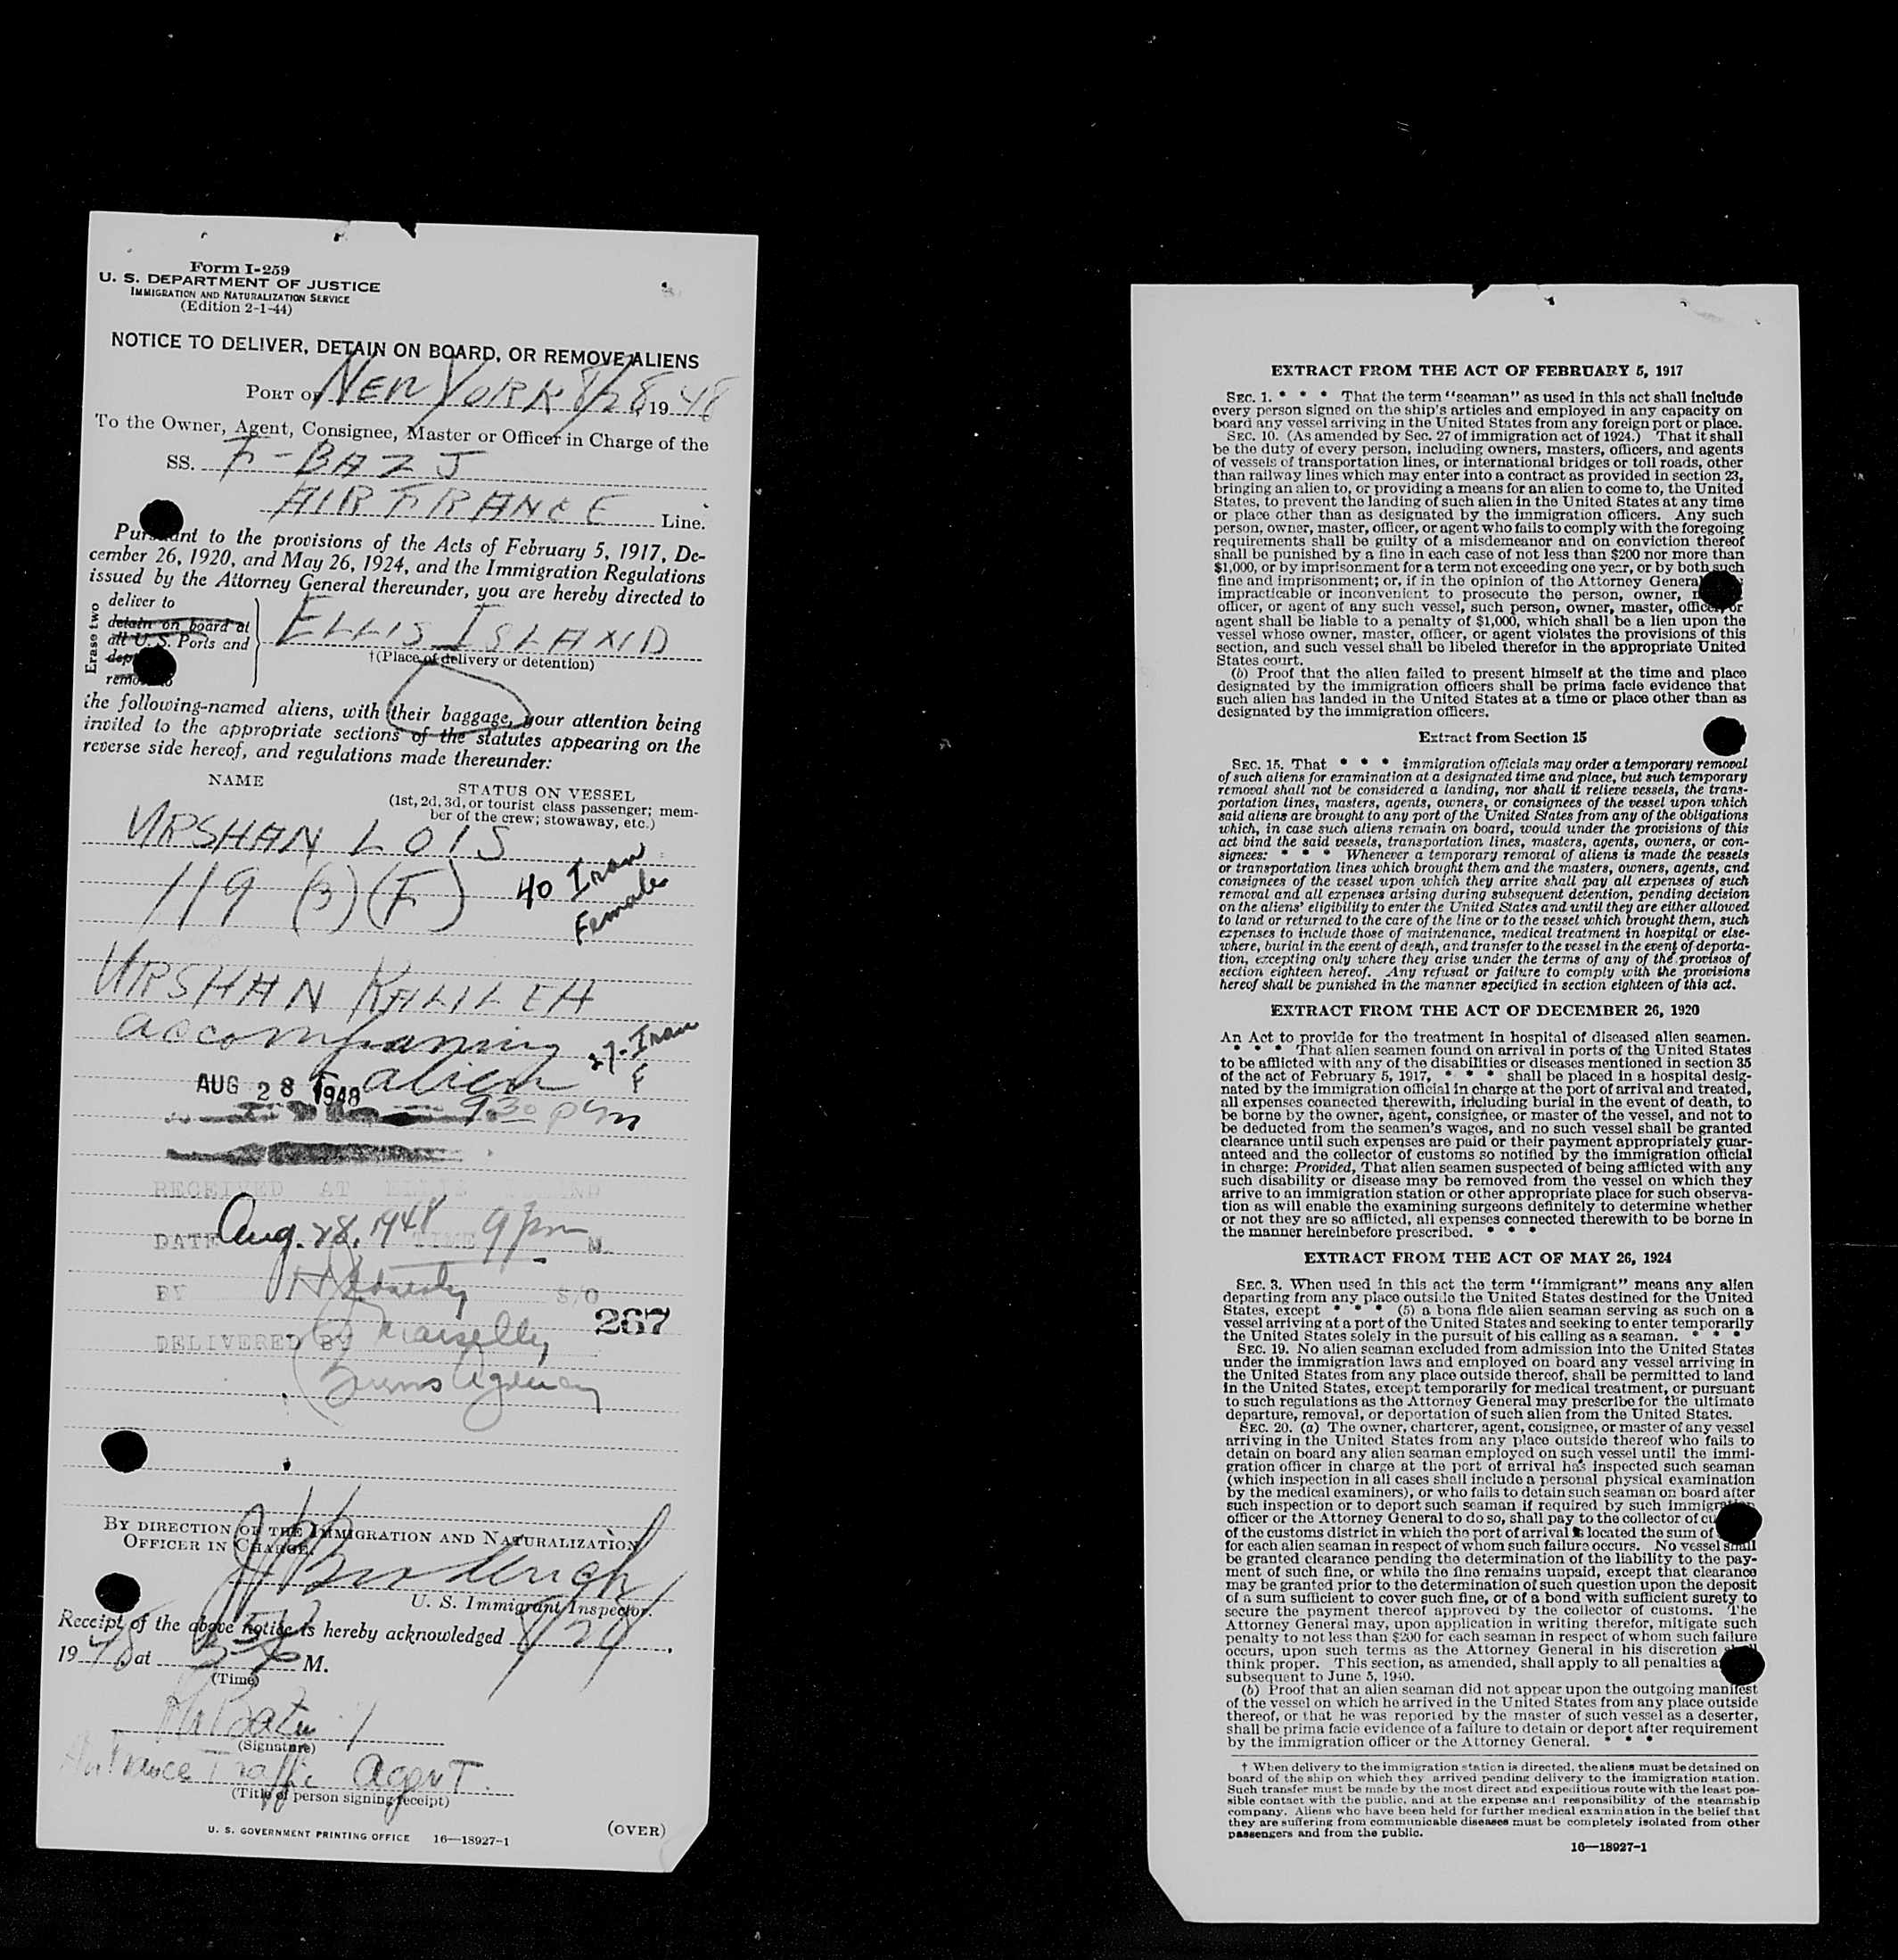 Form I-259
U. S. DEPARTMENT OF JUSTICE
IMMIGRATION AND NATURALIZATION SERVICE
(Edition 2-1-44)
NOTICE TO DELIVER, DETAIN ON BOARD, OR REMOVE ALIENS
PORT OF NEW YORK 8/28, 1948
To the Owner, Agent, Consignee, Master or Officer in Charge of the
SS. F-BAZJ
AIR FRANCE Line.
Pursuant to the provisions of the Acts of February 5, 1917, De-
cember 26, 1920, and May 26, 1924, and the Immigration Regulations
issued by the Attorney General thereunder, you are hereby directed to
Erase two
deliver to
detain on board at
all U. S. Ports and
remove to
ELLIS ISLAND
†(Place of delivery or detention)
the following-named aliens, with their baggage, your attention being
invited to the appropriate sections of the statutes appearing on the
reverse side hereof, and regulations made thereunder:
NAME
STATUS ON VESSEL
(1st, 2d, 3d, or tourist class passenger; mem-
ber of the crew; stowaway, etc.)
URSHAN LOIS
119 (3) (F) 40 Iran
Female
URSHAN KALILEH
accompaning 27-Iran
alien F
AUG 28 1948
9 30 pm
RECEIVED AT ELLIS ISLAND
DATE Aug. 28, 1948 TIME 9 pm M.
BY S/O
267
DELIVERED BY
Agency
BY DIRECTION OF THE IMMIGRATION AND NATURALIZATION
OFFICER IN CHARGE.
U. S. Immigrant Inspector.
Receipt of the above notice is hereby acknowledged 8/28,
1948, at M.
(Time)
(Signature)
Air France Traffic Agent.
(Title of person signing receipt)
U. S. GOVERNMENT PRINTING OFFICE 16—18927-1
(OVER)
EXTRACT FROM THE ACT OF FEBRUARY 5, 1917
SEC. 1. * * * That the term "seaman" as used in this act shall include
every person signed on the ship's articles and employed in any capacity on
board any vessel arriving in the United States from any foreign port or place.
SEC. 10. (As amended by Sec. 27 of immigration act of 1924.) That it shall
be the duty of every person, including owners, masters, officers, and agents
of vessels of transportation lines, or international bridges or toll roads, other
than railway lines which may enter into a contract as provided in section 23,
bringing an alien to, or providing a means for an alien to come to, the United
States, to prevent the landing of such alien in the United States at any time
or place other than as designated by the immigration officers. Any such
person, owner, master, officer, or agent who fails to comply with the foregoing
requirements shall be guilty of a misdemeanor and on conviction thereof
shall be punished by a fine in each case of not less than $200 nor more than
$1,000, or by imprisonment for a term not exceeding one year, or by both such
fine and imprisonment; or, if in the opinion of the Attorney General
impracticable or inconvenient to prosecute the person, owner,
officer, or agent of any such vessel, such person, owner, master, officer, or
agent shall be liable to a penalty of $1,000, which shall be a lien upon the
vessel whose owner, master, officer, or agent violates the provisions of this
section, and such vessel shall be libeled therefor in the appropriate United
States court.
(b) Proof that the alien failed to present himself at the time and place
designated by the immigration officers shall be prima facie evidence that
such alien has landed in the United States at a time or place other than as
designated by the immigration officers.
Extract from Section 15
SEC. 15. That * * * immigration officials may order a temporary removal
of such aliens for examination at a designated time and place, but such temporary
removal shall not be considered a landing, nor shall it relieve vessels, the trans-
portation lines, masters, agents, owners, or consignees of the vessel upon which
said aliens are brought to any port of the United States from any of the obligations
which, in case such aliens remain on board, would under the provisions of this
act bind the said vessels, transportation lines, masters, agents, owners, or con-
signees: * * * Whenever a temporary removal of aliens is made the vessels
or transportation lines which brought them and the masters, owners, agents, and
consignees of the vessel upon which they arrive shall pay all expenses of such
removal and all expenses arising during subsequent detention, pending decision
on the aliens' eligibility to enter the United States and until they are either allowed
to land or returned to the care of the line or to the vessel which brought them, such
expenses to include those of maintenance, medical treatment in hospital or else-
where, burial in the event of death, and transfer to the vessel in the event of deporta-
tion, excepting only where they arise under the terms of any of the provisos of
section eighteen hereof. Any refusal or failure to comply with the provisions
hereof shall be punished in the manner specified in section eighteen of this act.
EXTRACT FROM THE ACT OF DECEMBER 26, 1920
An Act to provide for the treatment in hospital of diseased alien seamen.
* * * That alien seamen found on arrival in ports of the United States
to be afflicted with any of the disabilities or diseases mentioned in section 35
of the act of February 5, 1917, * * * shall be placed in a hospital desig-
nated by the immigration official in charge at the port of arrival and treated,
all expenses connected therewith, including burial in the event of death, to
be borne by the owner, agent, consignee, or master of the vessel, and not to
be deducted from the seamen's wages, and no such vessel shall be granted
clearance until such expenses are paid or their payment appropriately guar-
anteed and the collector of customs so notified by the immigration official
in charge: Provided, That alien seamen suspected of being afflicted with any
such disability or disease may be removed from the vessel on which they
arrive to an immigration station or other appropriate place for such observa-
tion as will enable the examining surgeons definitely to determine whether
or not they are so afflicted, all expenses connected therewith to be borne in
the manner hereinbefore prescribed. * * *
EXTRACT FROM THE ACT OF MAY 26, 1924
SEC. 3. When used in this act the term "immigrant" means any alien
departing from any place outside the United States destined for the United
States, except * * * (5) a bona fide alien seaman serving as such on a
vessel arriving at a port of the United States and seeking to enter temporarily
the United States solely in the pursuit of his calling as a seaman. * * *
SEC. 19. No alien seaman excluded from admission into the United States
under the immigration laws and employed on board any vessel arriving in
the United States from any place outside thereof, shall be permitted to land
in the United States, except temporarily for medical treatment, or pursuant
to such regulations as the Attorney General may prescribe for the ultimate
departure, removal, or deportation of such alien from the United States.
SEC. 20. (a) The owner, charterer, agent, consignee, or master of any vessel
arriving in the United States from any place outside thereof who fails to
detain on board any alien seaman employed on such vessel until the immi-
gration officer in charge at the port of arrival has inspected such seaman
(which inspection in all cases shall include a personal physical examination
by the medical examiners), or who fails to detain such seaman on board after
such inspection or to deport such seaman if required by such immigration
officer or the Attorney General to do so, shall pay to the collector of
of the customs district in which the port of arrival is located the sum of
for each alien seaman in respect of whom such failure occurs. No vessel shall
be granted clearance pending the determination of the liability to the pay-
ment of such fine, or while the fine remains unpaid, except that clearance
may be granted prior to the determination of such question upon the deposit
of a sum sufficient to cover such fine, or of a bond with sufficient surety to
secure the payment thereof approved by the collector of customs. The
Attorney General may, upon application in writing therefor, mitigate such
penalty to not less than $200 for each seaman in respect of whom such failure
occurs, upon such terms as the Attorney General in his discretion shall
think proper. This section, as amended, shall apply to all penalties
subsequent to June 5, 1940.
(b) Proof that an alien seaman did not appear upon the outgoing manifest
of the vessel on which he arrived in the United States from any place outside
thereof, or that he was reported by the master of such vessel as a deserter,
shall be prima facie evidence of a failure to detain or deport after requirement
by the immigration officer or the Attorney General. * * *
† When delivery to the immigration station is directed, the aliens must be detained on
board of the ship on which they arrived pending delivery to the immigration station.
Such transfer must be made by the most direct and expeditious route with the least pos-
sible contact with the public, and at the expense and responsibility of the steamship
company. Aliens who have been held for further medical examination in the belief that
they are suffering from communicable diseases must be completely isolated from other
passengers and from the public.
16—18927-1